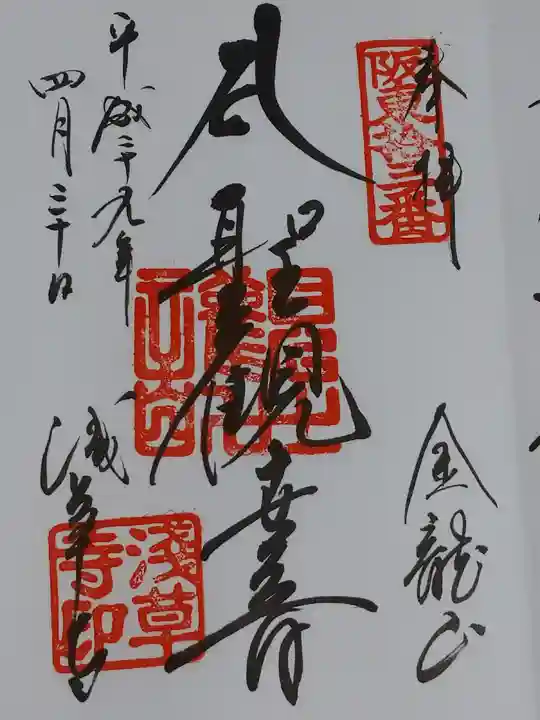 奉拝
阪東拾三番
金龍山
聖観世音
平成二十九年
四月三十日
浅草寺
浅草寺印